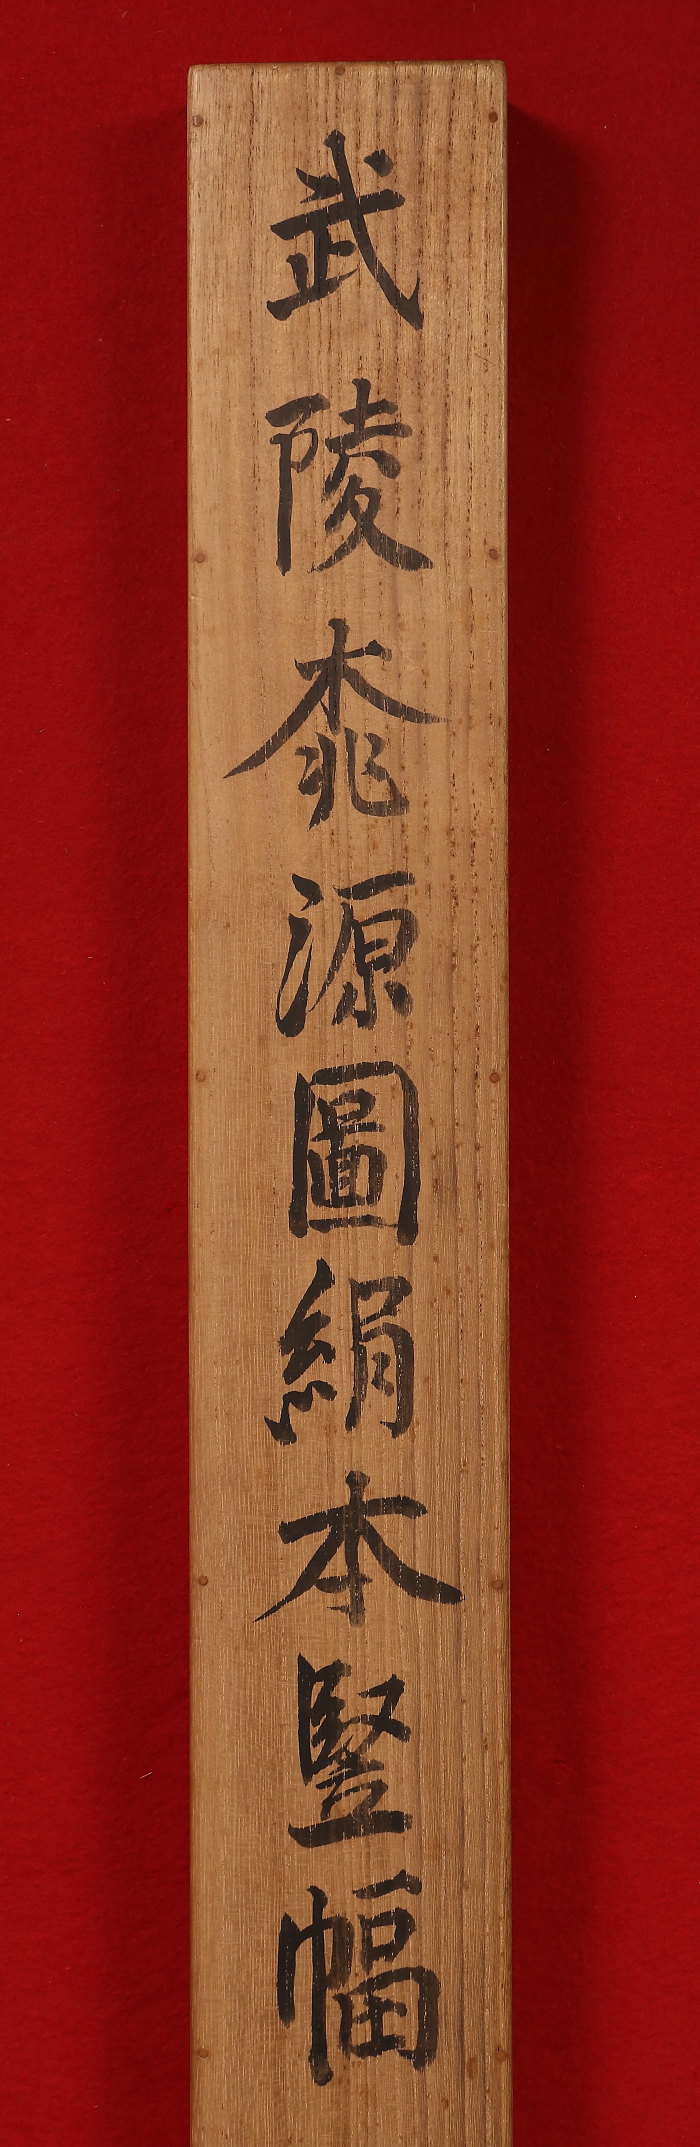 武陵桃源圖絹本竪幅